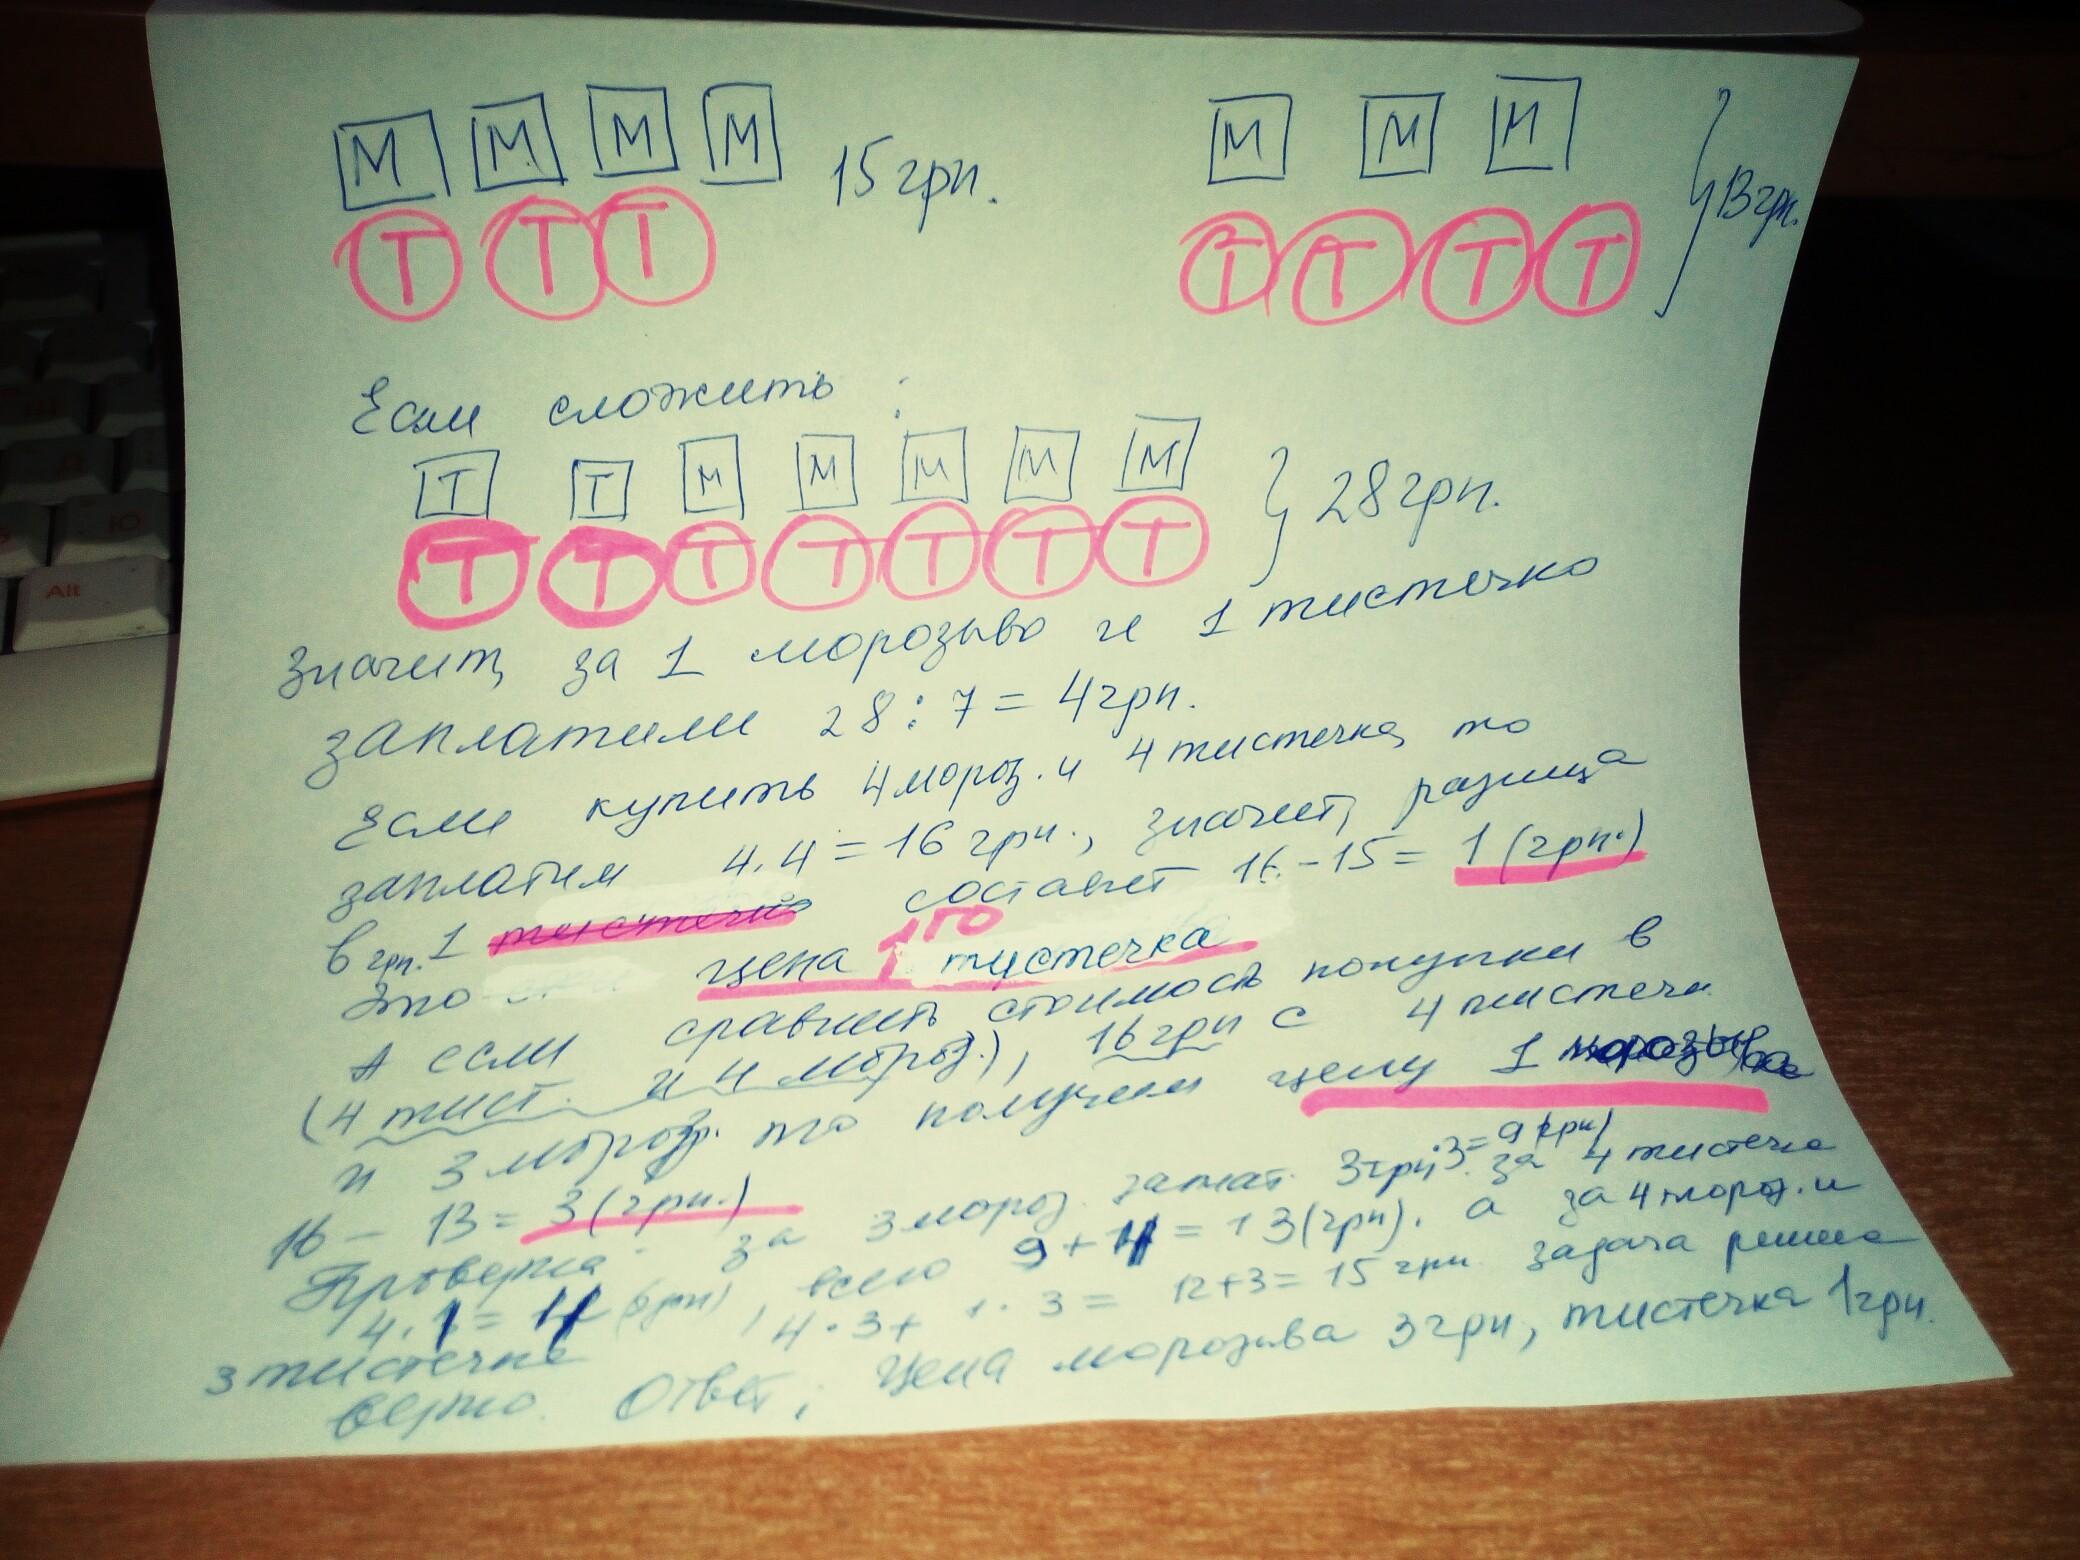 М М М М 15 грн.
Т Т Т
М М М 13 грн.
Т Т Т Т
Если сложить :
Т Т М М М М М 28 грн.
Т Т Т Т Т Т Т
Значит, за 1 морозыво и 1 тистечко
заплатили 28 : 7 = 4 грн.
Если купить 4 мороз. и 4 тистечка, то
заплатим 4 . 4 = 16 грн., значит, разница
в грн. 1 тистечко составит 16 - 15 = 1 (грн.)
Это цена 1го тистечка
А если сравнить стоимость покупки в
(4 тист. и 4 мороз.), 16 грн с 4 тистечк
и 3 мороз. то получим цену 1 морозыва
16 - 13 = 3 (грн.)
Проверка. за 3 мороз. заплат. 3 грн. · 3 = 9 (грн) за 4 тистечка
4 . 1 = 4 (грн), всего 9 + 4 = 13 (грн). а за 4 мороз. и
3 тистечка 4 · 3 + 1 · 3 = 12 + 3 = 15 грн задача решена
верно. Ответ: Цена морозыва 3 грн, тистечка 1 грн.
Alt
Ю